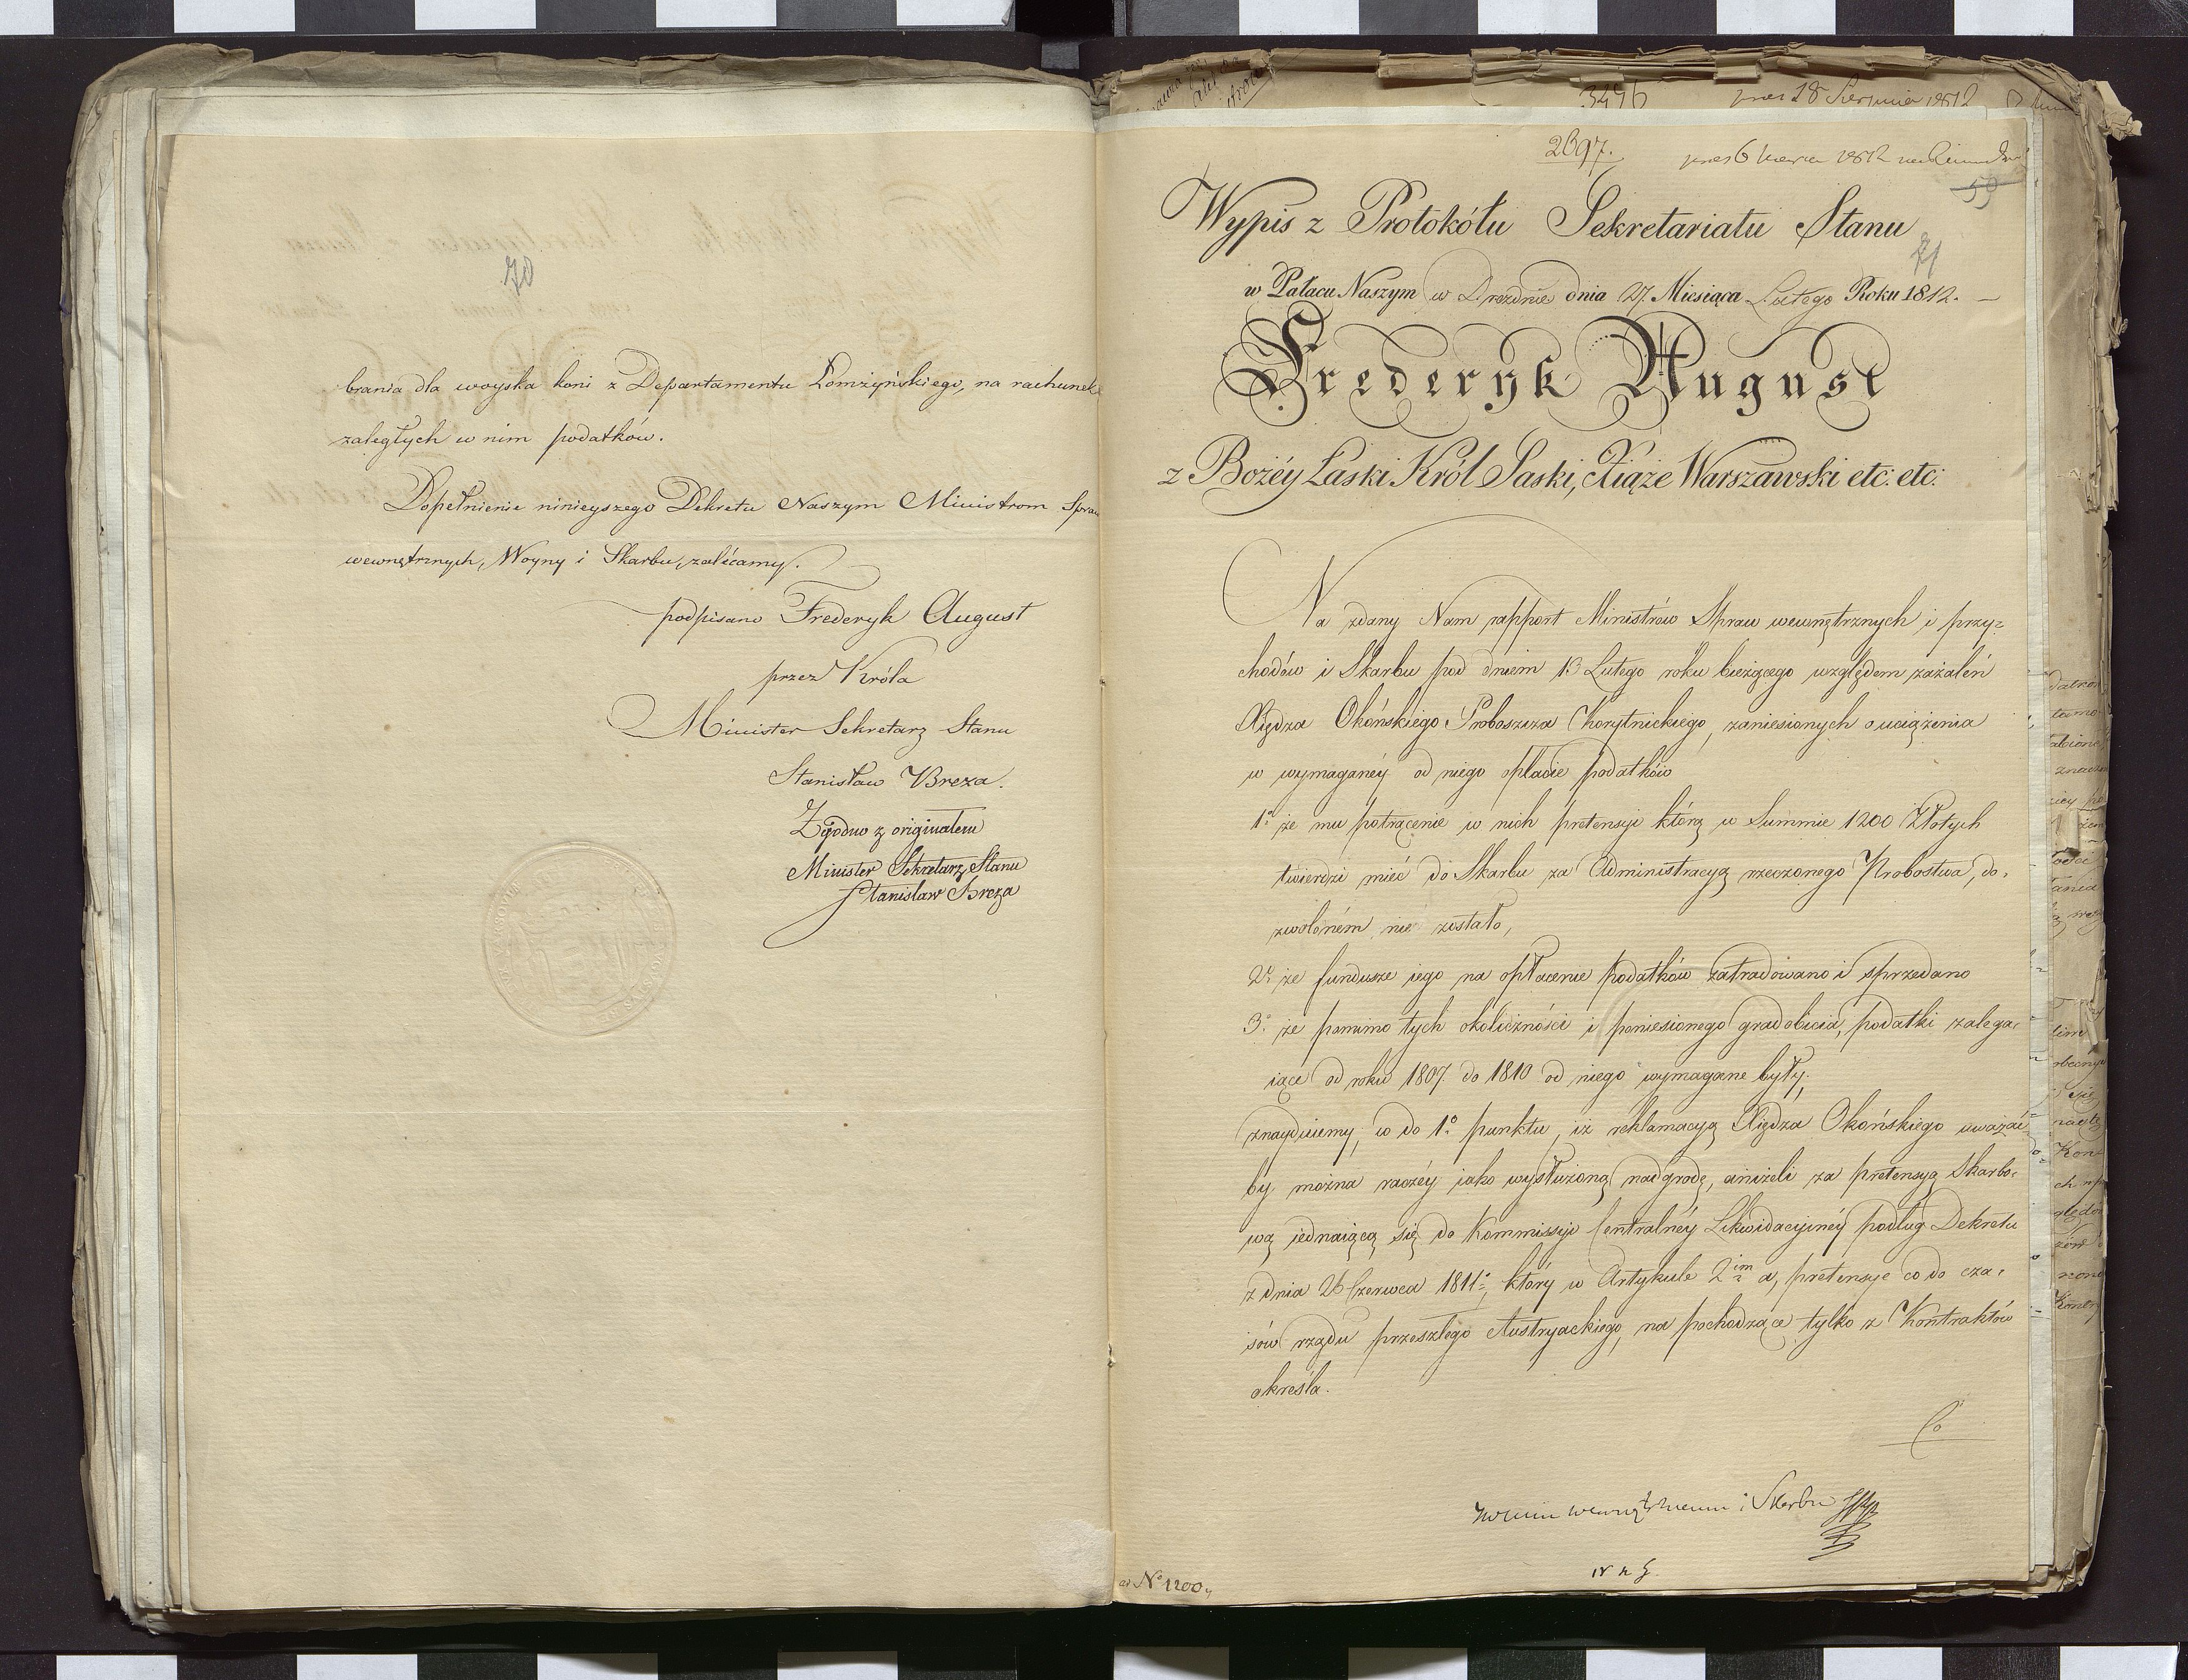 70
brania dla woyska koni z Departamentu Łomżyńskiego, na rachunek
zaległych w nim podatków.
Dopełnienie ninieyszego Dekretu Naszym Ministrom Spraw
wewnętrznych, Woyny i Skarbu, zalécamy.
podpisano Frederyk August
przez Króla
Minister Sekretarz Stanu
Stanisław Breza.
Zgodno z originałem
Minister Sekretarz Stanu
Stanisław Breza
3496 18 Sierpnia 1812
2697. 6 1812
59
Wypis z Protokółu Sekretariatu Stanu
71
w Pałacu Naszym w Dreźnie dnia 27 Miesiąca Lutego Roku 1812.
Frederyk August
z Bożéy Łaski Król Saski, Xiąże Warszawski etc: etc:
Na zdany Nam rapport Ministrów Spraw wewnętrznych i przy=
chodów i Skarbu pod dniem 13 Lutego roku bieżącego względem zażaleń
Xiędza Okońskiego Proboszcza Korytnickiego, zaniesionych o uciążenia
w wymaganéy od niego opłacie podatków
1º że mu potrącenie w nich pretensyi którą w Summie 1200 Złotych
twierdzi mieć do Skarbu za Administracyą rzeczonego Probostwa, do=
zwoloném nie zostało,
2º że fundusze iego na opłacenie podatków zatradowano i sprzedano
3º że pomimo tych okoliczności i poniesionego gradobicia, podatki zalega=
iące od roku 1807 do 1810 od niego wymagane były;
znayduiemy, co do 1º punktu, iż reklamacyą Xiędza Okońskiego uważać
by można raczéy iako wysłużoną nadgrodę, aniżeli za pretensyą Skarbo=
wą iednaiącą się do Kommissyi Centralnéy Likwidacyinéy podług Dekretu
z dnia 26 Czerwca 1811º, który w Artykule 2im a, pretensye co do cza=
sów rządu przeszłego Austryackiego, na pochodzące tylko z Kontraktów
okréśla.
Co
wewnętrznemu i Skarbu
ad Nº 1200